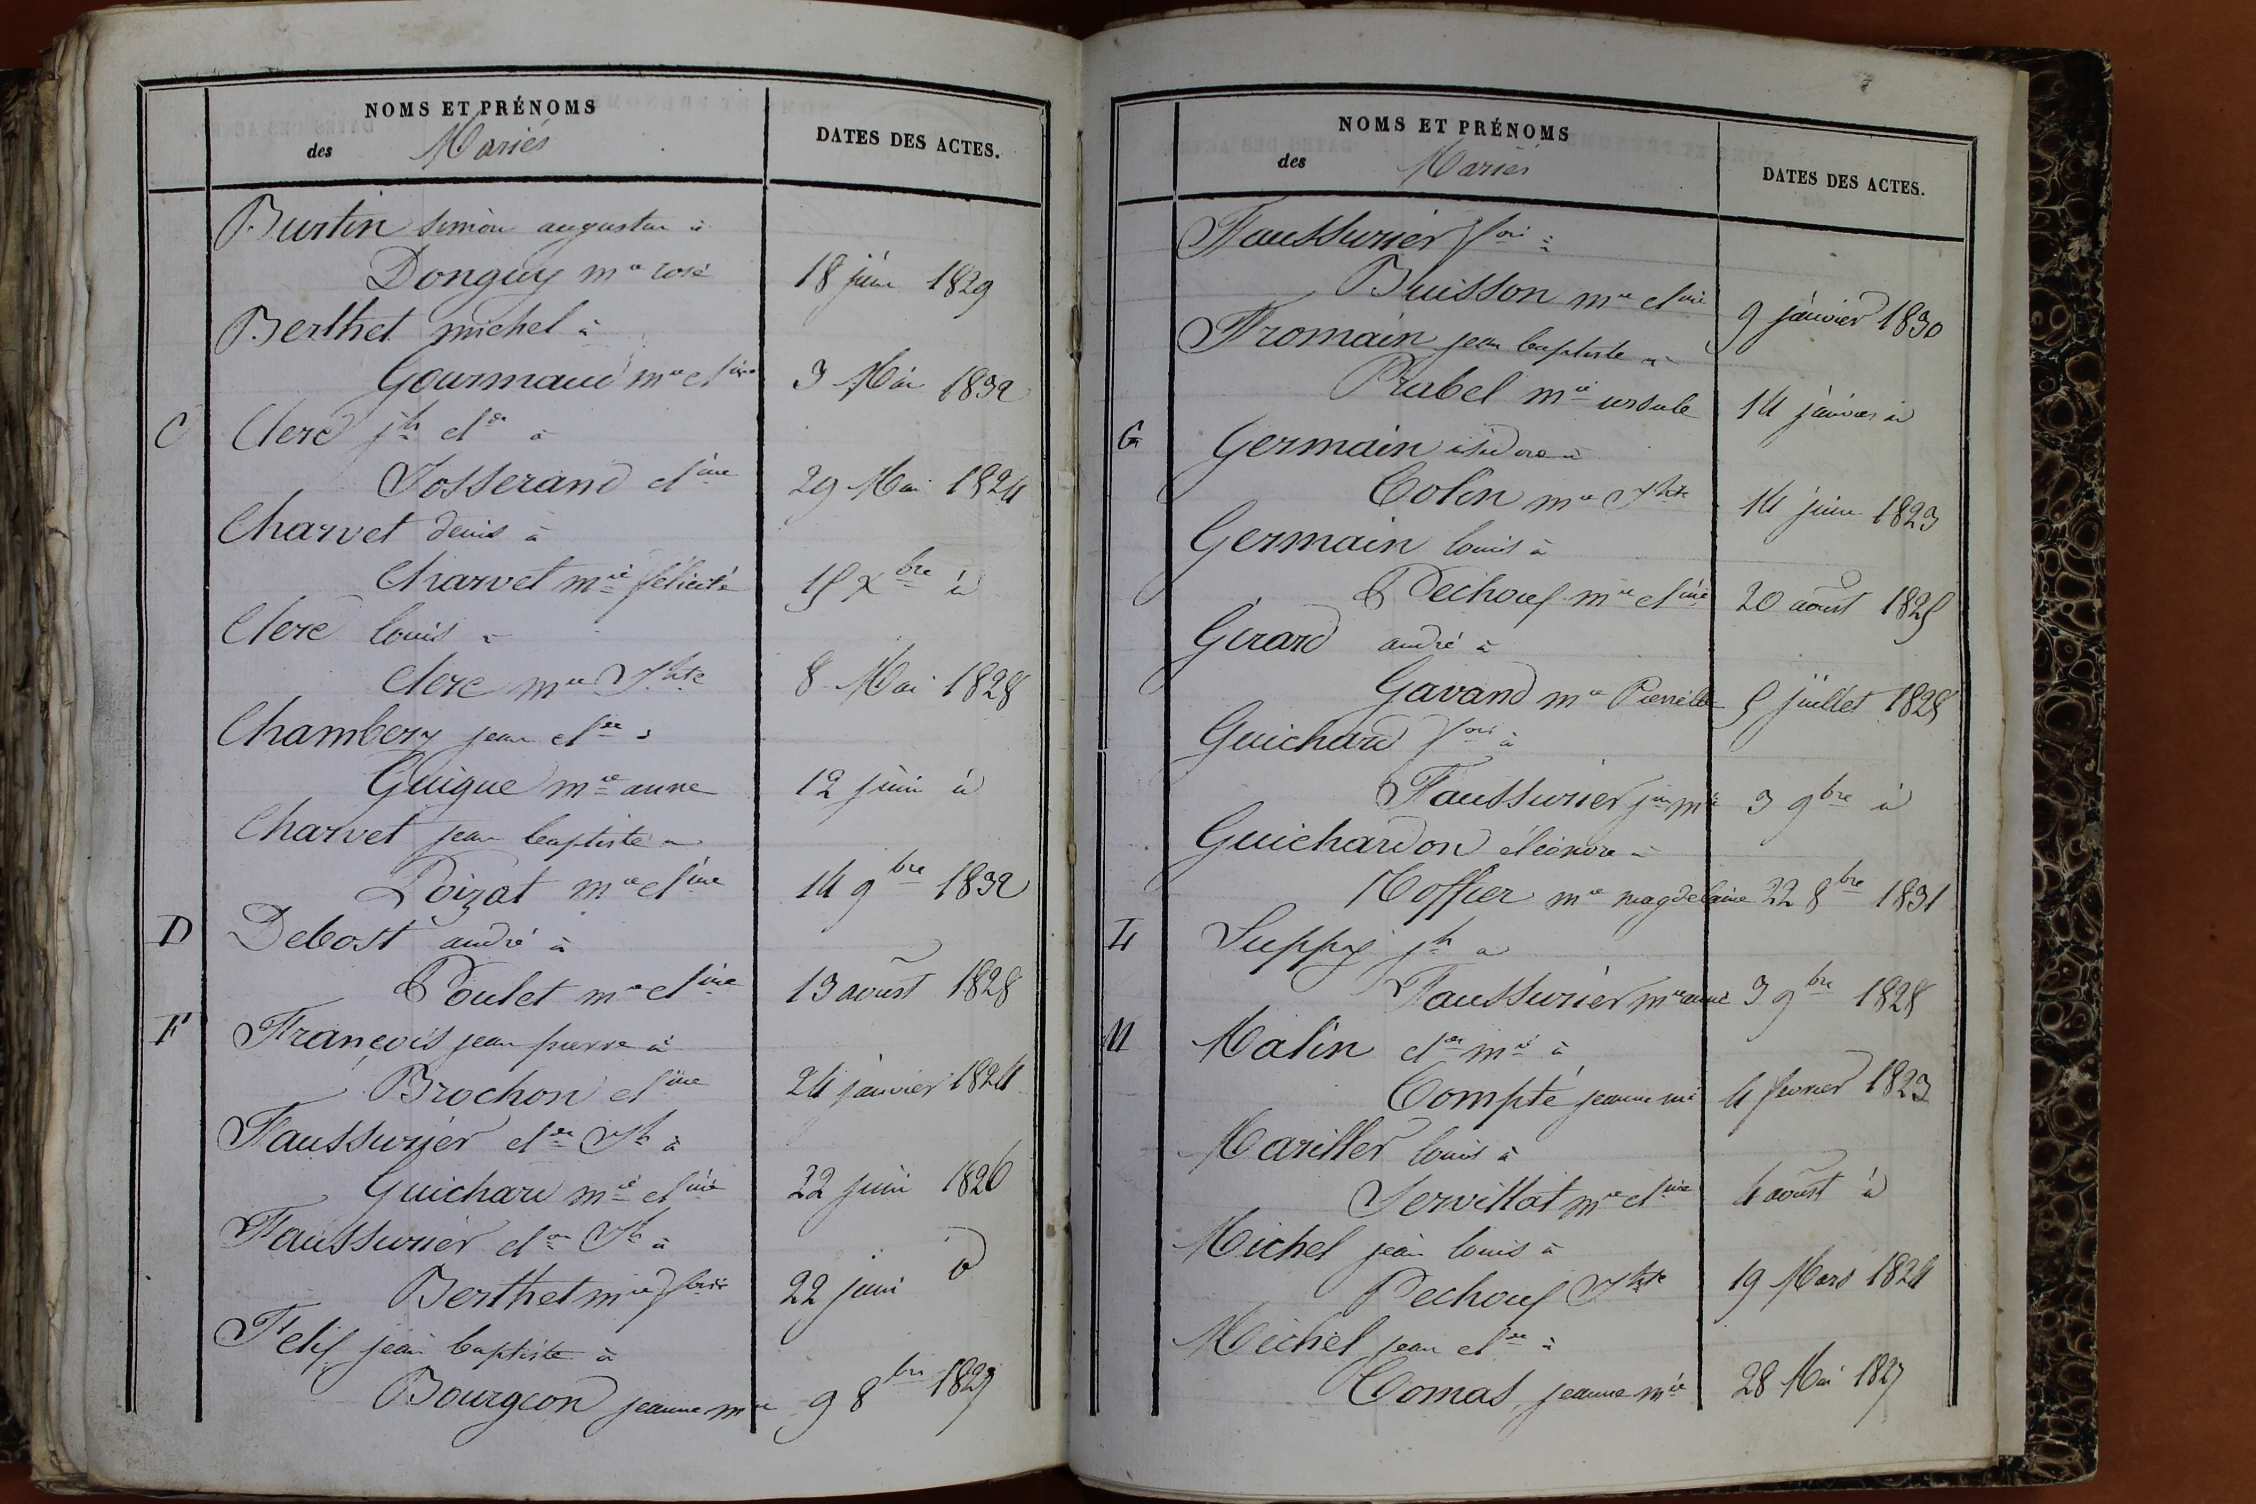 NOMS ET PRÉNOMS
des Mariés
DATES DES ACTES.
Burtin simon augustin à
Donguy mie rose 18 juin 1829
Berthet michel à
Gourmaud mie cline 3 Mai 1832
C Clerc jh clde à
Josserand cline 29 Mai 1824
Charvet denis à
Charvet mie félicité 15 Xbre id
Clerc louis à
Clerc mie Jhte 8 Mai 1828
Chambery jean clde à
Guigue mie anne 12 juin id
Charvet jean baptiste à
Poizat mie cline 14 9bre 1832
D Debost andré à
Poulet mie cline 13 aoust 1828
F François jean pierre à
Brochon cline 24 janvier 1824
Faussurier clde Jh à
Guichard mie cline 22 juin 1826
Faussurier clde Jh à
Berthet mie foise 22 juin id
Felix jean baptiste à
Bourgeon jeanne mie 9 8bre 1827
NOMS ET PRÉNOMS
des Mariés
DATES DES ACTES.
Faussurier fois à
Buisson mie cline 9 janvier 1830
Fromain jean baptiste à
Prabel mie ursule 14 janvier id
G Germain isidore à
Colin mie Jhte 14 juin 1823
Germain louis à
Pechoux mie cline 20 aoust 1825
Girard andré à
Gavand mie Pierrette 5 juillet 1828
Guichard fois à
Faussurier jne mie 3 9bre id
Guichardon éléonore à
Moffier mie magdelaine 22 8bre 1831
L Luppy jh à
Faussurier mie anne 3 9bre 1828
M Malin clde mie à
Compte jeanne mie 4 fevrier 1823
Mariller louis à
Servillat mie cline 4 aoust id
Michel jean louis à
Pechoux Jhte 19 Mars 1824
Michel jean clde à
Comas jeanne mie 28 Mai 1827